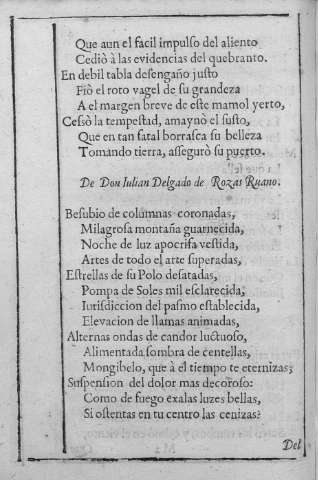 Que aun el facil impulſo del aliento
Cediò à las evidencias del quebranto.
En debil tabla deſengaño juſto
Fiò el roto vagel de ſu grandeza
A el margen breve de eſte mamol yerto,
Ceſsò la tempeſtad, amaynò el ſuſto,
Que en tan fatal borraſca ſu belleza
Tomando tierra, aſſegurò ſu puerto.
De Don Iulian Delgado de Rozas Ruano.
Beſubio de columnas coronadas,
Milagroſa montaña guarnecida,
Noche de luz apocrifa veſtida,
Artes de todo el arte ſuperadas,
Eſtrellas de ſu Polo deſatadas,
Pompa de Soles mil eſclarecida,
Iuriſdiccion del paſmo eſtablecida,
Elevacion de llamas animadas,
Alternas ondas de candor luctuoſo,
Alimentada ſombra de centellas,
Mongibelo, que à el tiempo te eternizas;
Suſpenſion del dolor mas decoroſo:
Como de fuego exalas luzes bellas,
Si oſtentas en tu centro las cenizas?
Del